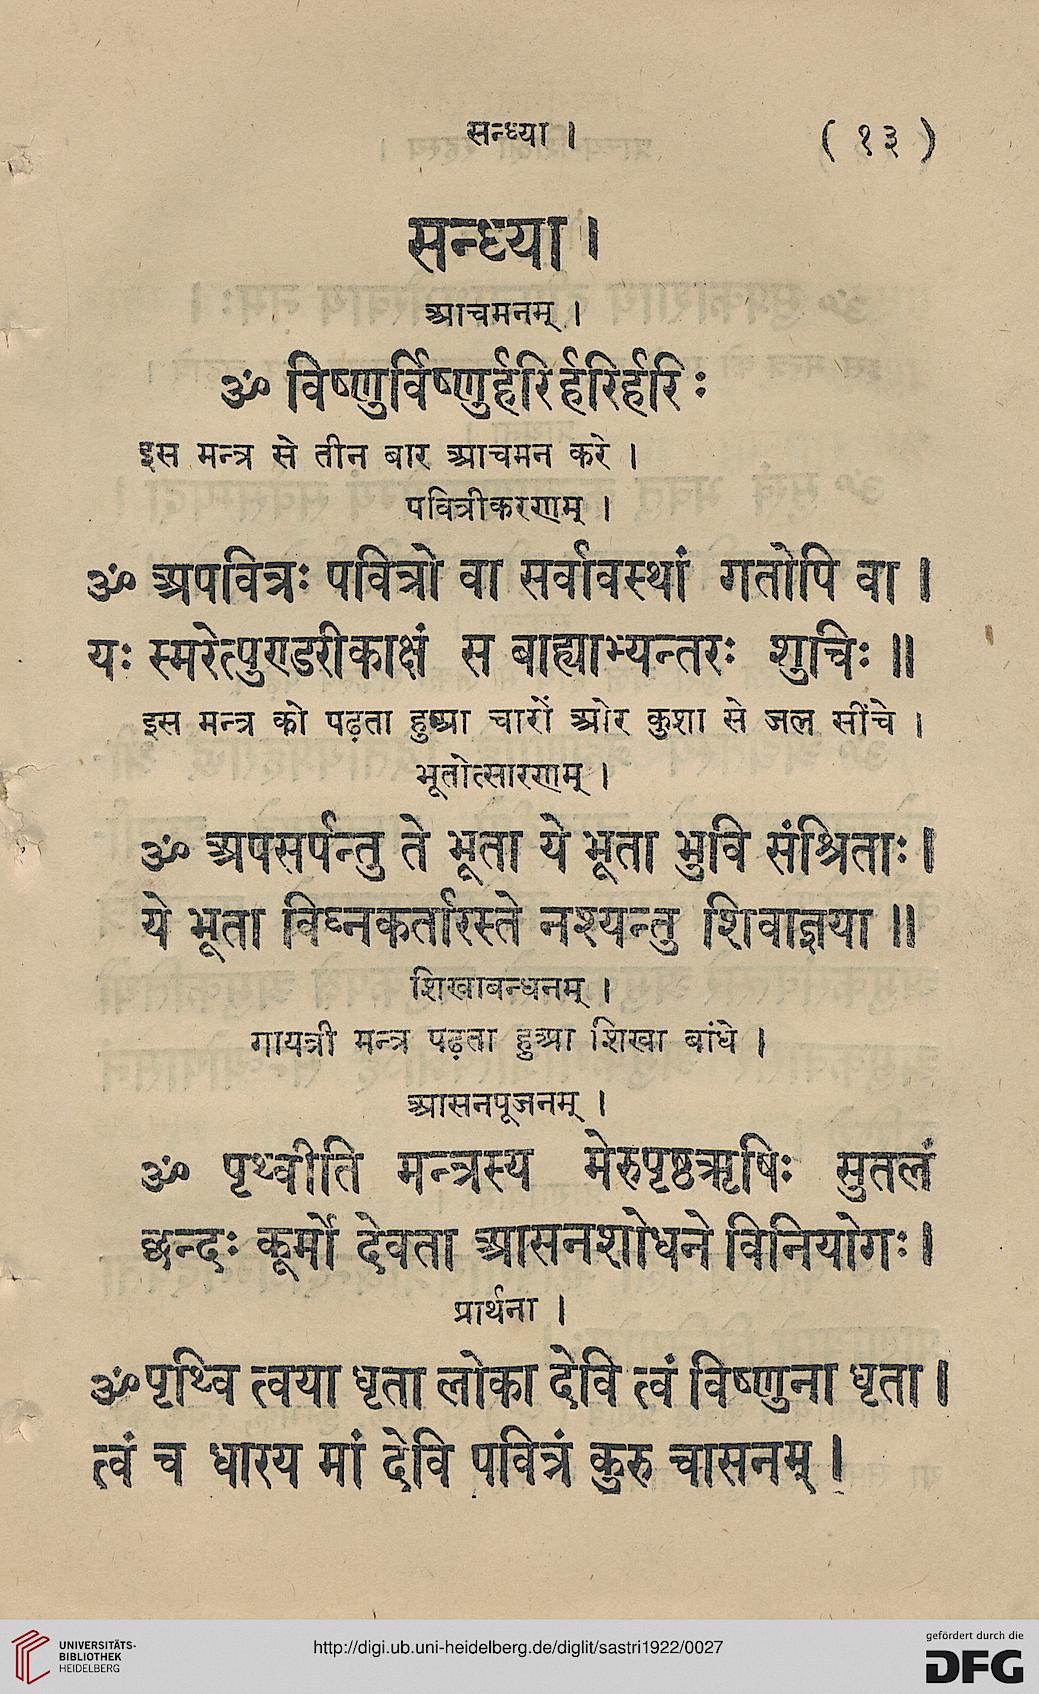 सन्ध्या । ( १३ )
सन्ध्या ।
आचमनम् ।
ॐ विष्णुर्विष्णुर्हरिर्हरिर्हरिः
इस मन्त्र से तीन बार आचमन करे ।
पवित्रीकरणम् ।
ॐ अपवित्रः पवित्रो वा सर्वावस्थां गतोपि वा ।
यः स्मरेत्पुण्डरीकाक्षं स बाह्याभ्यन्तरः शुचिः ॥
इस मन्त्र को पढ़ता हुआ चारों ओर कुशा से जल सींचे ।
भूतोत्सारणम् ।
ॐ अपसर्पन्तु ते भूता ये भूता भुवि संश्रिताः ।
ये भूता विघ्नकर्तारस्ते नश्यन्तु शिवाज्ञया ॥
शिखाबन्धनम् ।
गायत्री मन्त्र पढ़ता हुआ शिखा बांधे ।
आसनपूजनम् ।
ॐ पृथ्वीति मन्त्रस्य मेरुपृष्ठऋषिः सुतलं
छन्दः कूर्मो देवता आसनशोधने विनियोगः ।
प्रार्थना ।
ॐ पृथ्वि त्वया धृता लोका देवि त्वं विष्णुना धृता ।
त्वं च धारय मां देवि पवित्रं कुरु चासनम् ।
UNIVERSITÄTS-
BIBLIOTHEK
HEIDELBERG
http://digi.ub.uni-heidelberg.de/diglit/sastri1922/0027
gefördert durch die
DFG